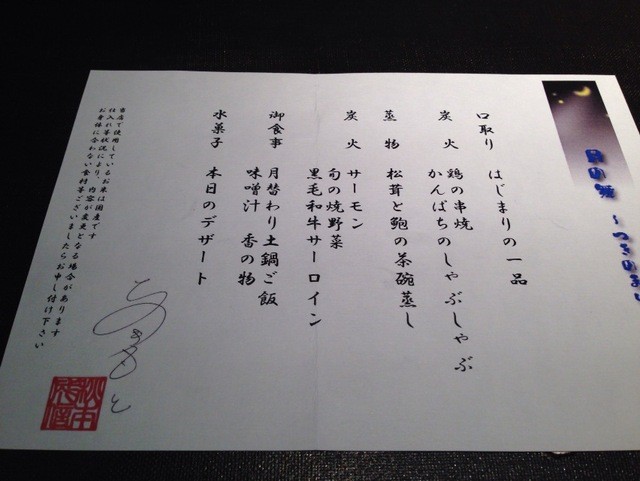 月の舞 〜つきのまい
口取り はじまりの一品
炭火 鶏の串焼
かんぱちのしゃぶしゃぶ
蒸物 松茸と鮑の茶碗蒸し
炭火 サーモン
旬の焼野菜
黒毛和牛サーロイン
御食事 月替わり土鍋ご飯
味噌汁 香の物
水菓子 本日のデザート
当店で使用しているお米は国産です
仕入れ等状況により、内容が変更となる場合があります
お身体に合わない食材等ございましたらお申し付け下さい